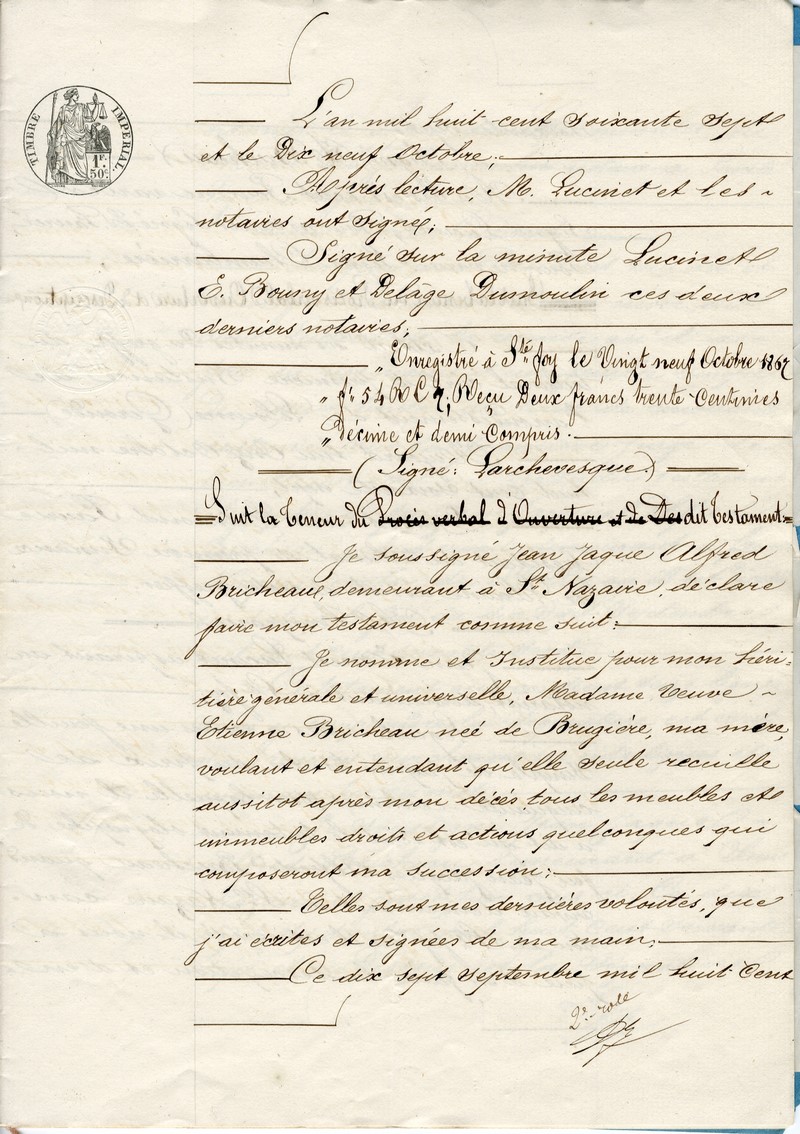 TIMBRE IMPERIAL.
1F.
50c.
L'an mil huit cent soixante sept
et le Dix neuf Octobre;
Après lecture, M. Lucinet et les
notaires ont signé;
Signé sur la minute Lucinet
E. Bouny et Delage Dumoulin ces deux
derniers notaires;
„ Enregistré à Ste foy le Vingt neuf Octobre 1867
„ fo 54 R C 7; Reçu Deux francs trente Centimes
„ Décime et demi Compris.
(Signé: Larchevesque.)
Suit la Teneur du Procès verbal d'Ouverture et de Des dit Testament:
Je soussigné Jean Jaque Alfred
Bricheau, demeurant à St Nazaire, déclare
faire mon testament comme suit:
Je nomme et Institue pour mon héri-
tière générale et universelle, Madame Veuve
Etienne Bricheau neé de Brugière, ma mère,
voulant et entendant qu'elle seule recueille
aussitot après mon décés, tous les meubles et
immeubles droits et actions quelconques qui
composeront ma succession;
Telles sont mes dernières volontés, que
j'ai écrites et signées de ma main;
Ce dix sept septembre mil huit Cent
2e role